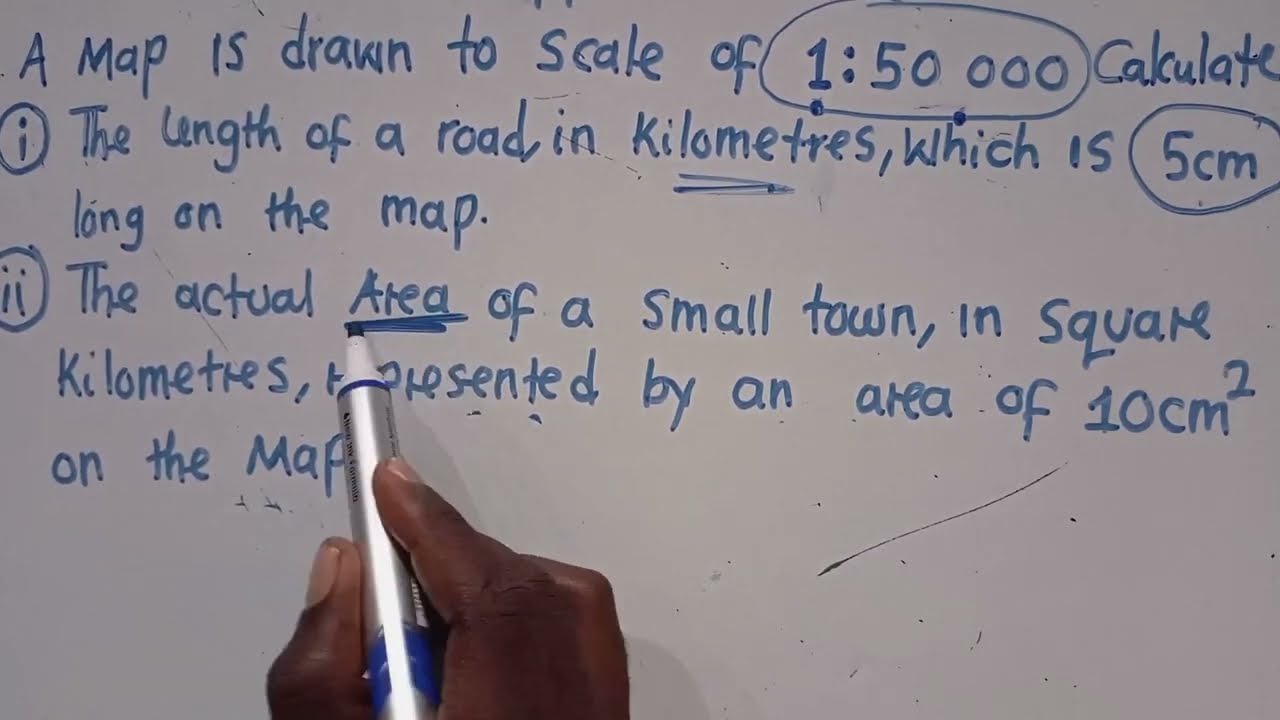 A Map is drawn to Scale of 1:50 000 Calculate
i The length of a road, in Kilometres, which is 5cm
long on the map.
ii The actual Area of a small town, in square
Kilometres, represented by an area of 10cm²
on the Map